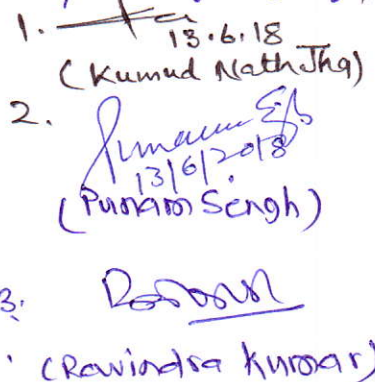 1.
13.6.18
(Kumud Nath Jha)
2.
13/6/2018
(Punam Singh)
3.
(Ravindra Kumar)